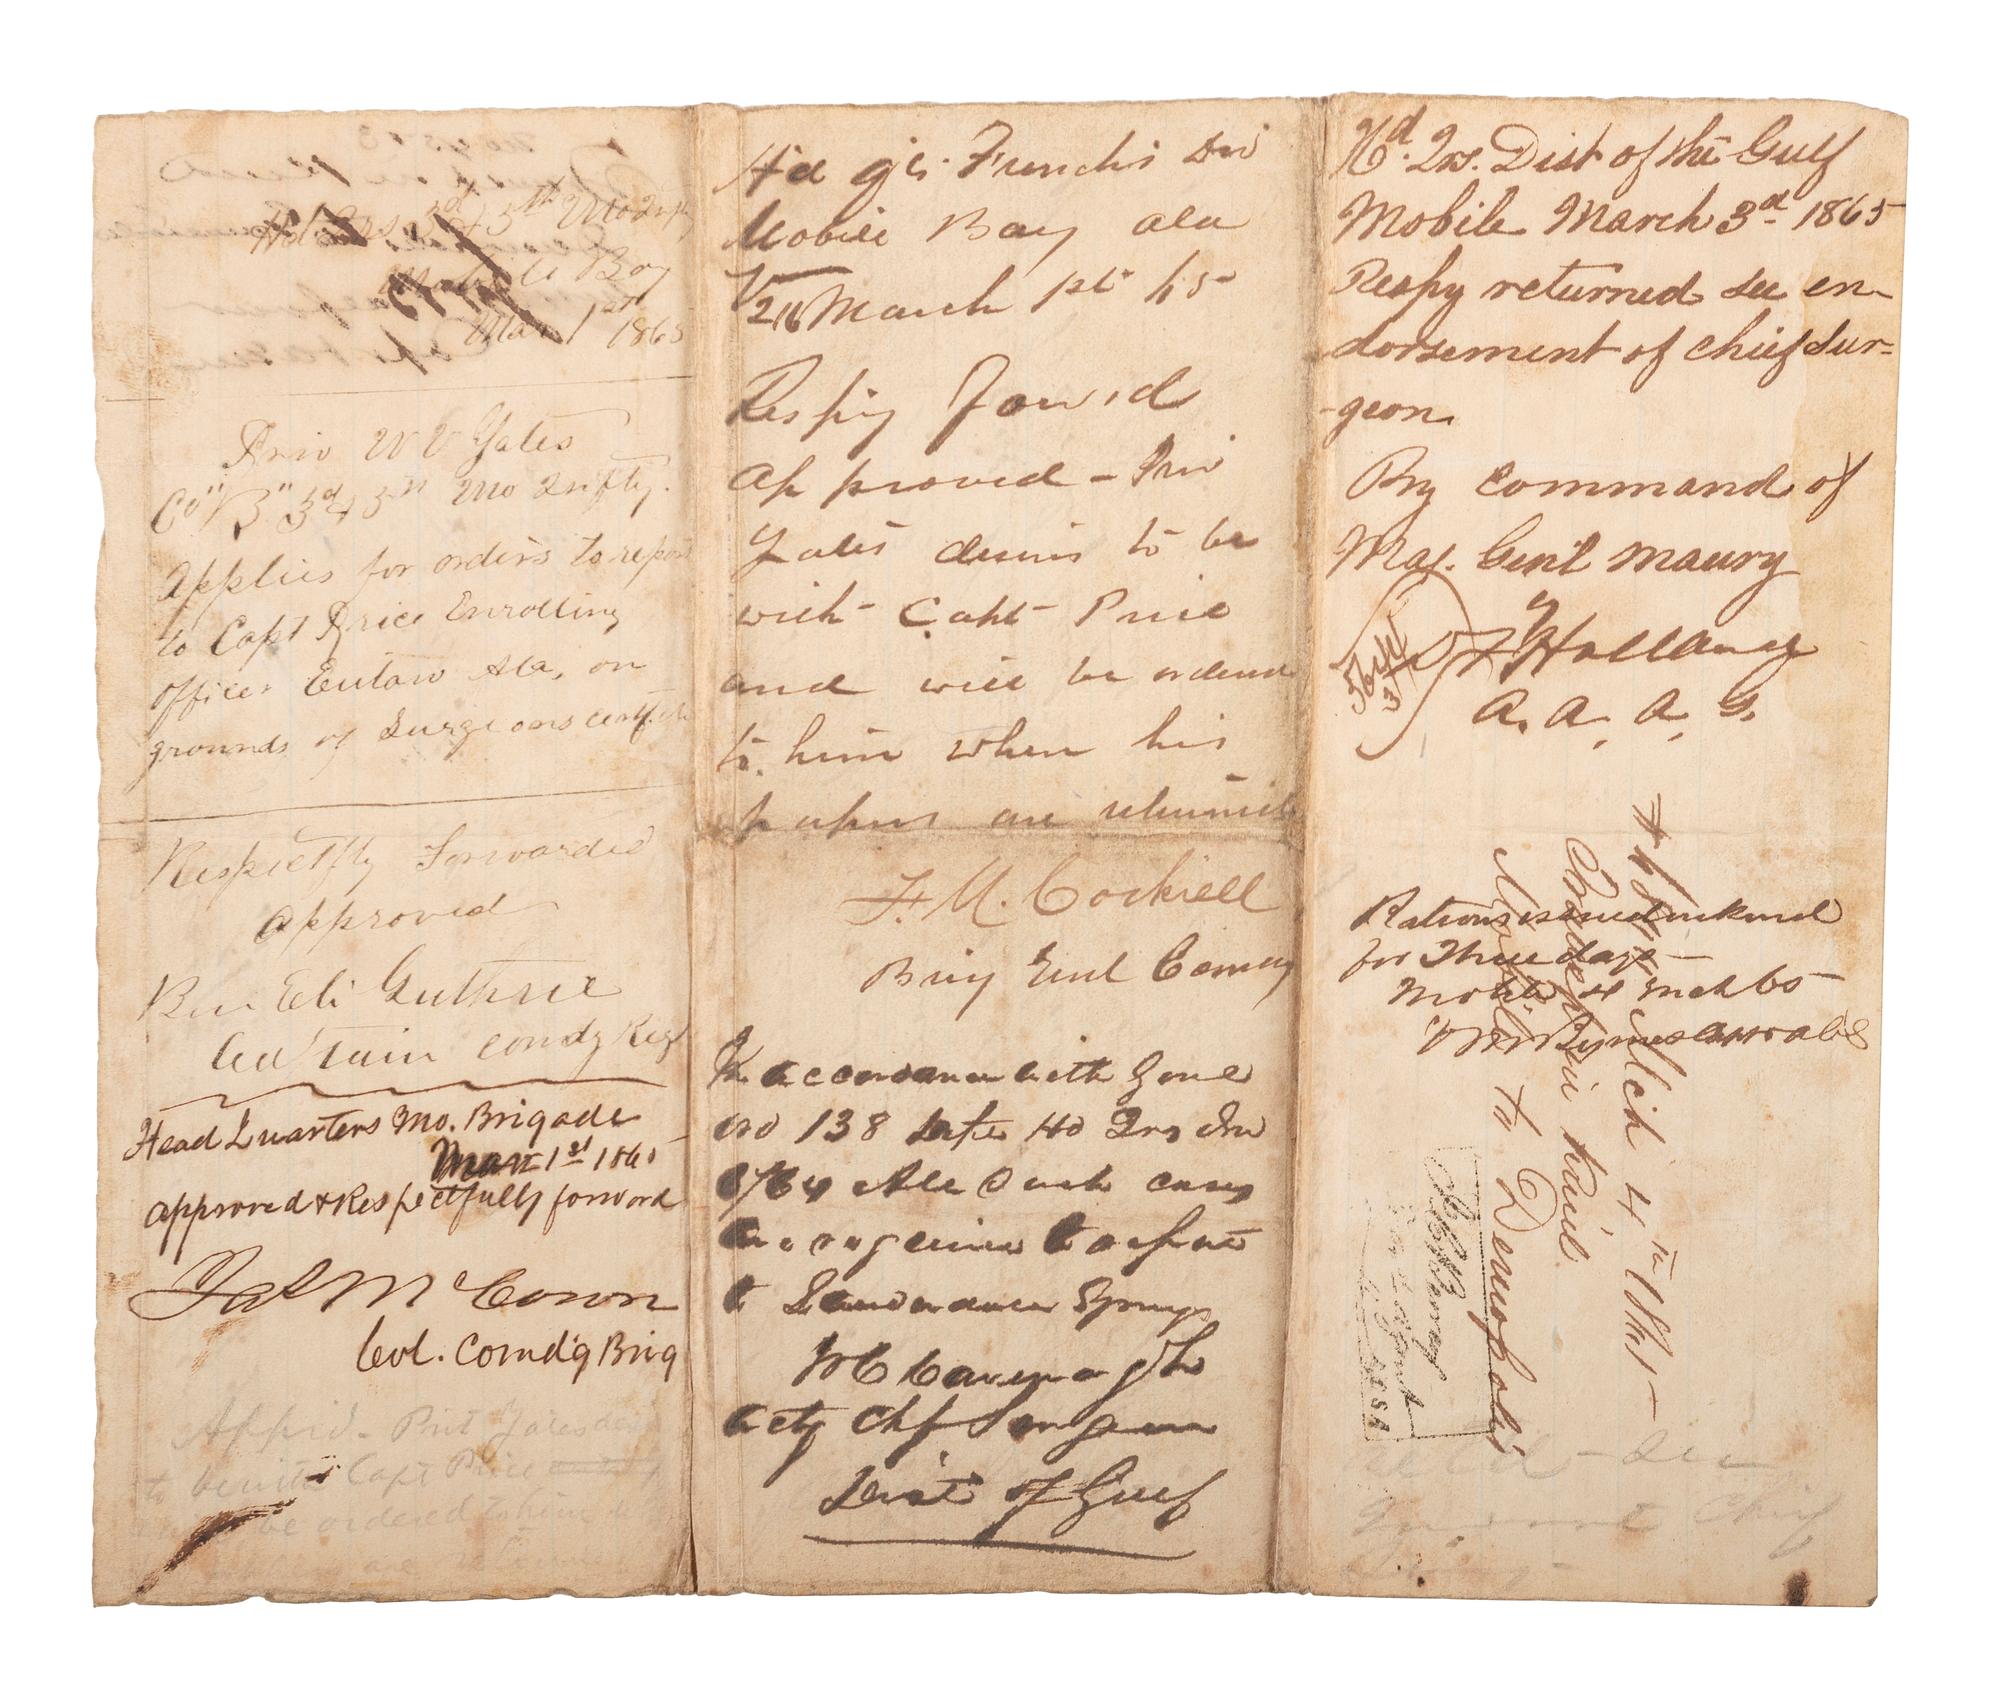 Hd Qrs 3d & 5th Mo Infty
Mobile Bay
Mar 1st 1865
Priv W V Yates
Co "B" 3d & 5th Mo Infty.
Applies for orders to report
to Capt Price Enrolling
Officer Eutaw Ala, on
grounds of Surgeons certft
Respectfly Forwarded
approved
Ben Eli Guthrie
Captain comdg Reg
Head Quarters Mo. Brigade
Mar 1st 1865
approved & Respectfully forward
Jas McCown
Col. Comd'g Brig
App'd - Priv Yates
to be with Capt Price
be ordered to him
Hd qrs. Frenchs Div
Mobile Bay ala
March 1st 65
Respfy Forw'd
approved - Priv
Yates desires to be
with Capt Price
and will be ordered
to him when his
papers are returned
F. M. Cockrell
Brig Genl Comdg
In accordance with Genl
no 138 Hd Qrs
64 All such cases
are required to report
to Lauderdale Springs
Cavenagh
Actg Chf Surgeon
Dist of Gulf
Hd. Qrs. Dist of the Gulf
Mobile March 3d 1865
Respy returned see en-
dorsement of chief Sur=
-geon.
By command of
Maj. Gen'l Maury
Holland
A. A. A. G.
Rations issued in kind
for Three days
Mobile 4 Mch 65
Mch 4th 1865
Mobile to Demopolis
see
Chief